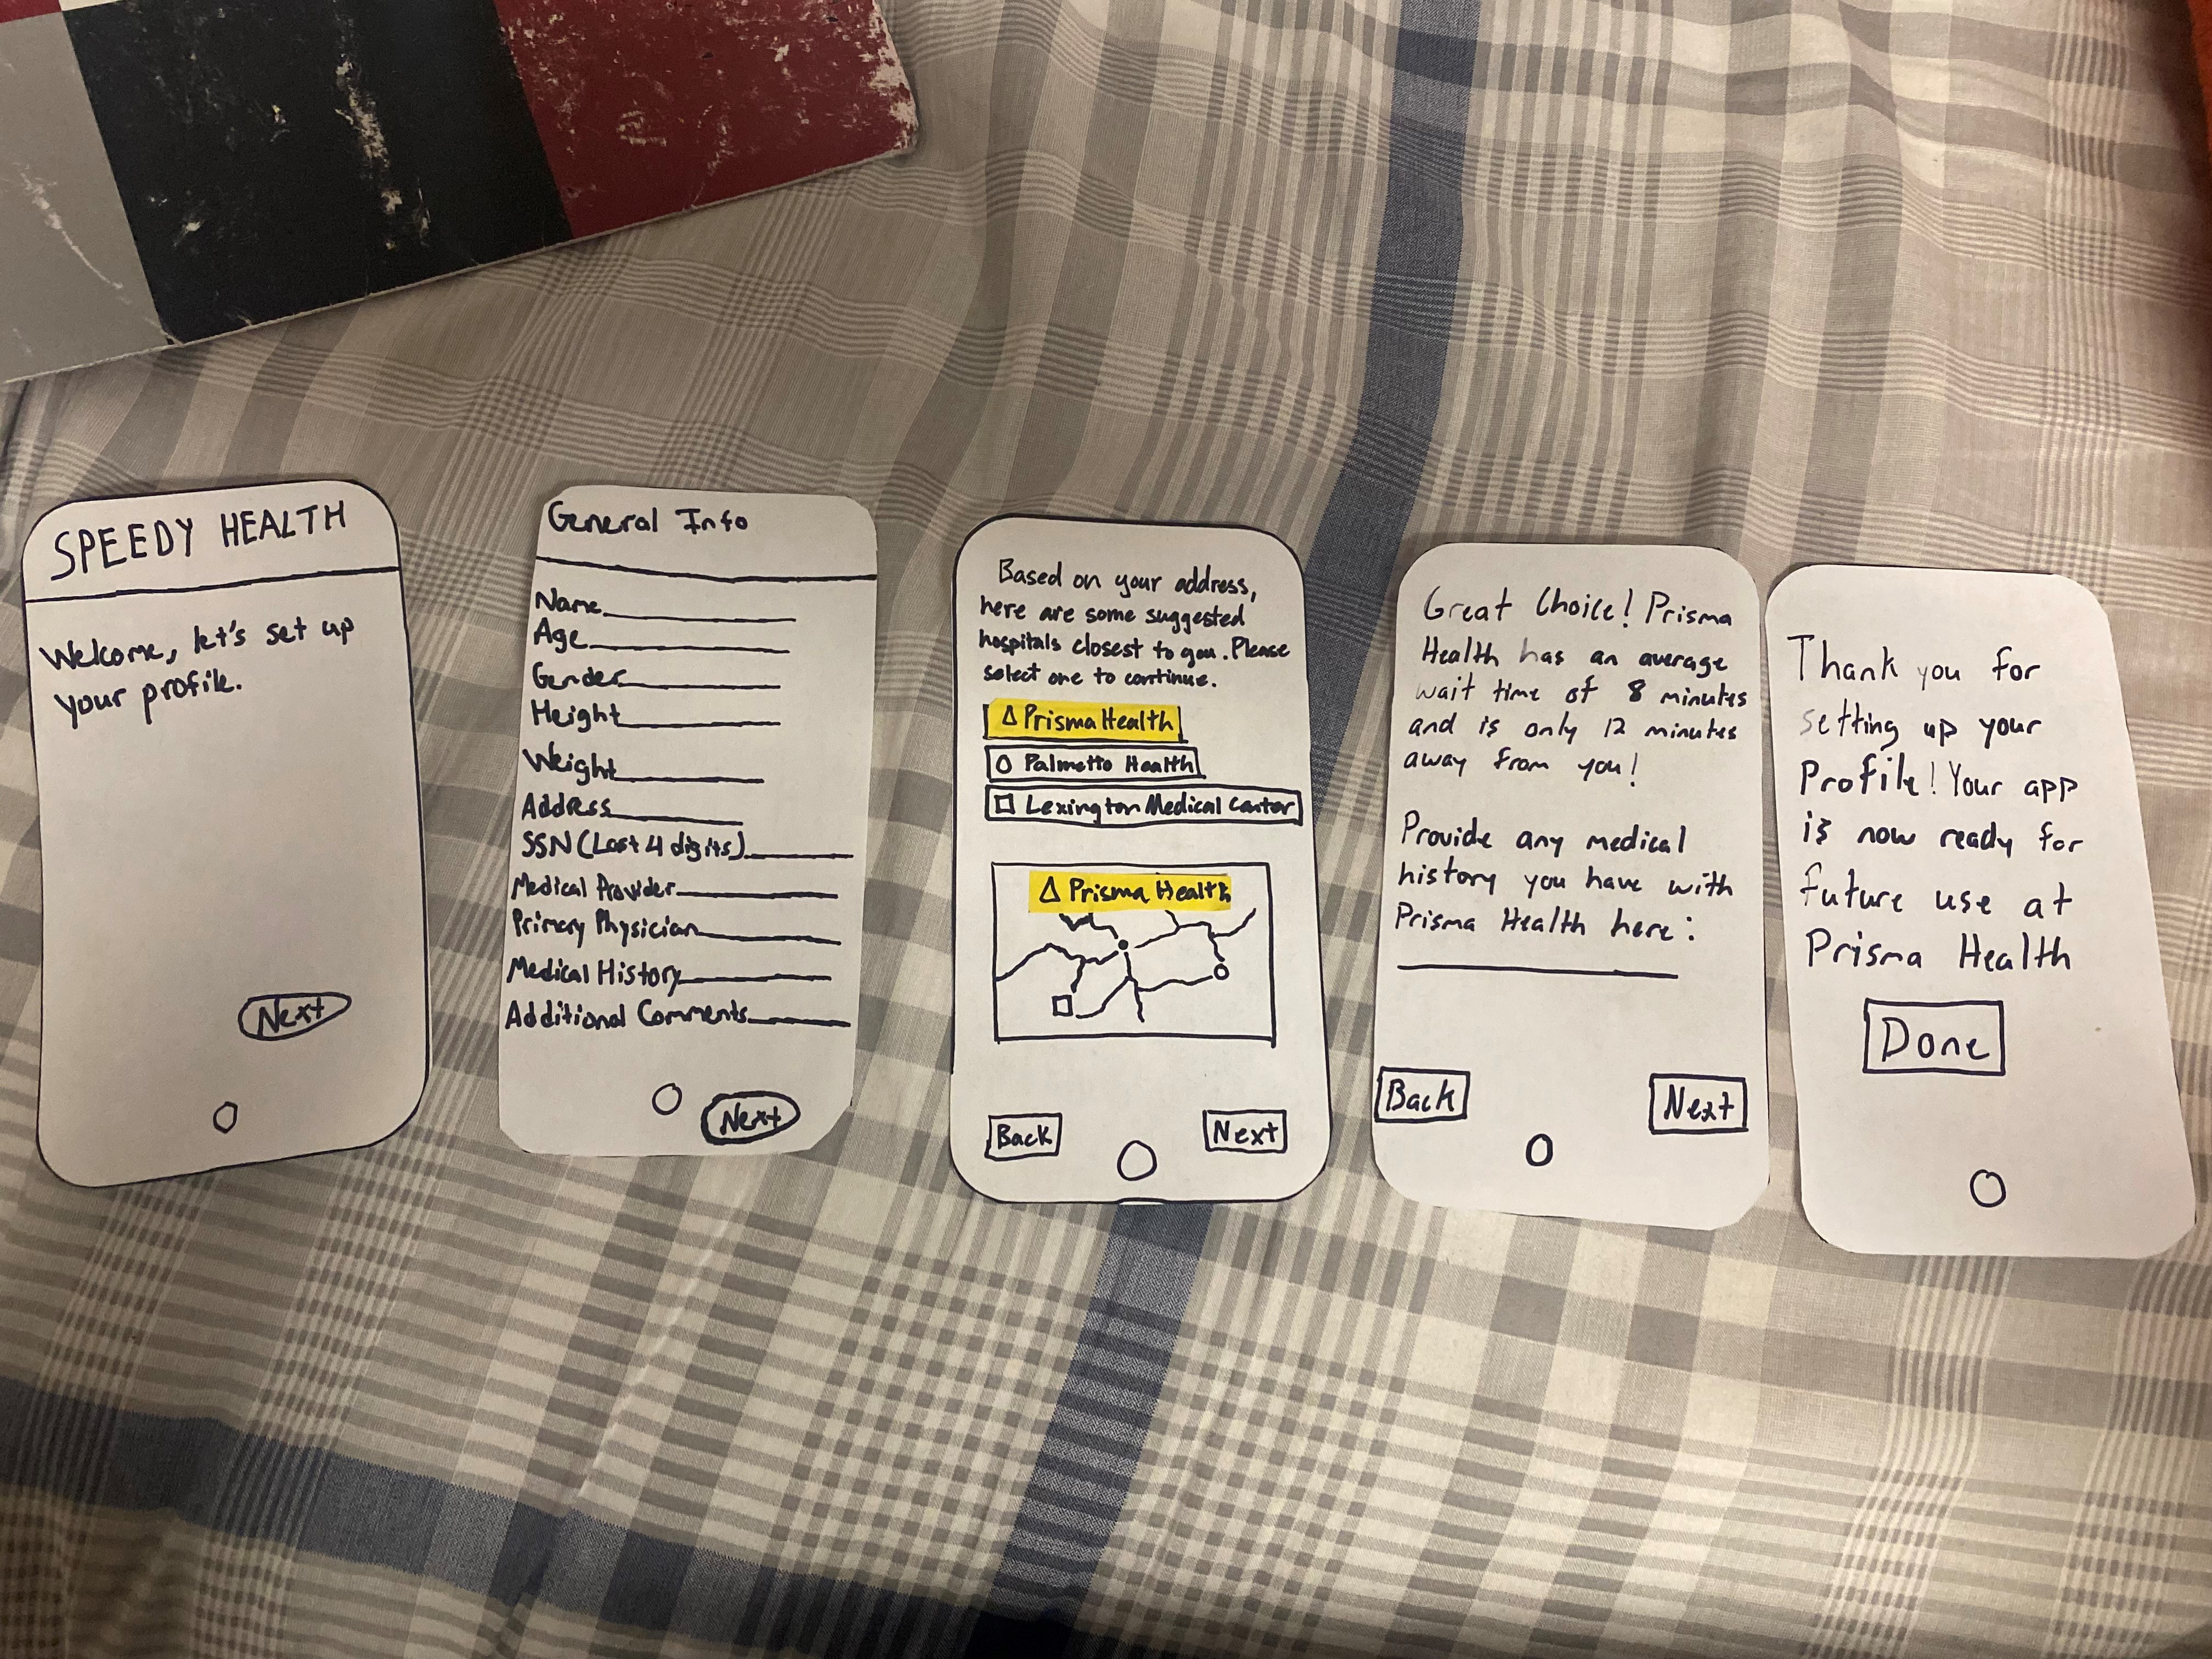 SPEEDY HEALTH
Welcome, let's set up
your profile.
Next
General Info
Name
Age
Gender
Height
Weight
Address
SSN (Last 4 digits)
Medical Provider
Primary Physician
Medical History
Additional Comments
Next
Based on your address,
here are some suggested
hospitals closest to you. Please
select one to continue.
Prisma Health
Palmetto Health
Lexington Medical Center
Prisma Health
Back
Next
Great Choice! Prisma
Health has an average
wait time of 8 minutes
and is only 12 minutes
away from you!
Provide any medical
history you have with
Prisma Health here:
Back
Next
Thank you for
setting up your
Profile! Your app
is now ready for
future use at
Prisma Health
Done